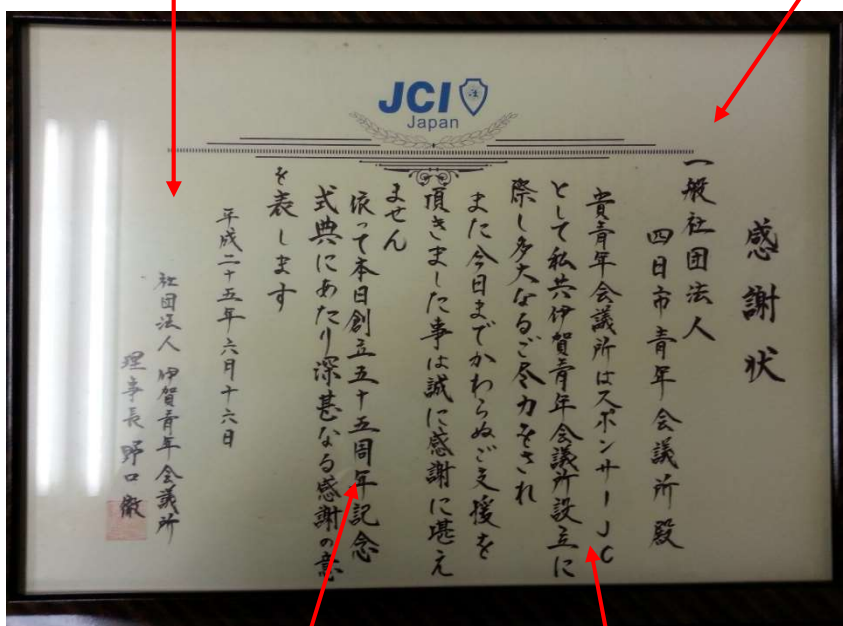 JCI
Japan
感謝状
一般社団法人
四日市青年会議所殿
貴青年会議所はスポンサーJC
として私共伊賀青年会議所設立に
際し多大なるご尽力をされ
また今日までかわらぬご支援を
頂きました事は誠に感謝に堪え
ません
依って本日創立五十五周年記念
式典にあたり深甚なる感謝の意
を表します
平成二十五年六月十六日
社団法人伊賀青年会議所
理事長野口徹